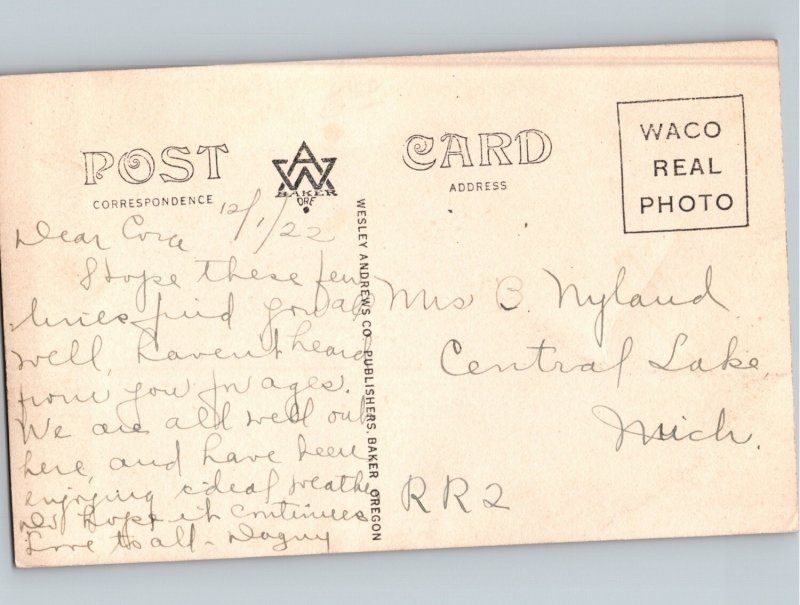 POST CARD
CORRESPONDENCE
ADDRESS
AW
BAKER
ORE
WACO
REAL
PHOTO
WESLEY ANDREWS CO. PUBLISHERS, BAKER OREGON
12/1/22
Dear Cora
I Hope these few
lines find you all
well, haven't heard
from you in ages.
We are all well out
here, and have been
enjoying ideal weather
hope it continues
Love to all - Dagny
Mrs C. Nyland
Central Lake,
Mich.
RR2